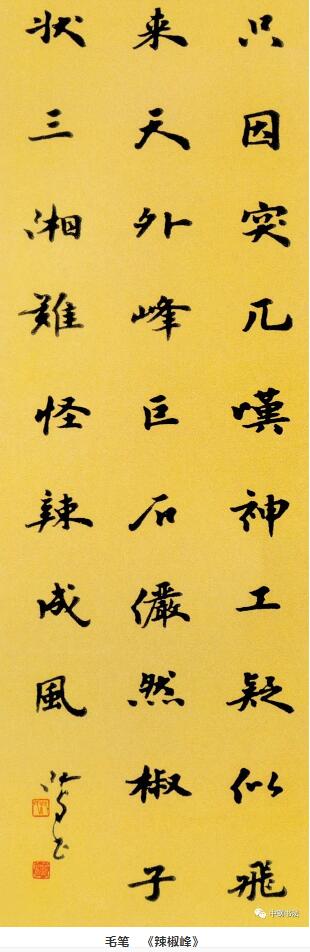 只因突兀嘆神工疑似飛
来天外峰巨石儼然椒子
状三湘難怪辣成風
毛笔 《辣椒峰》